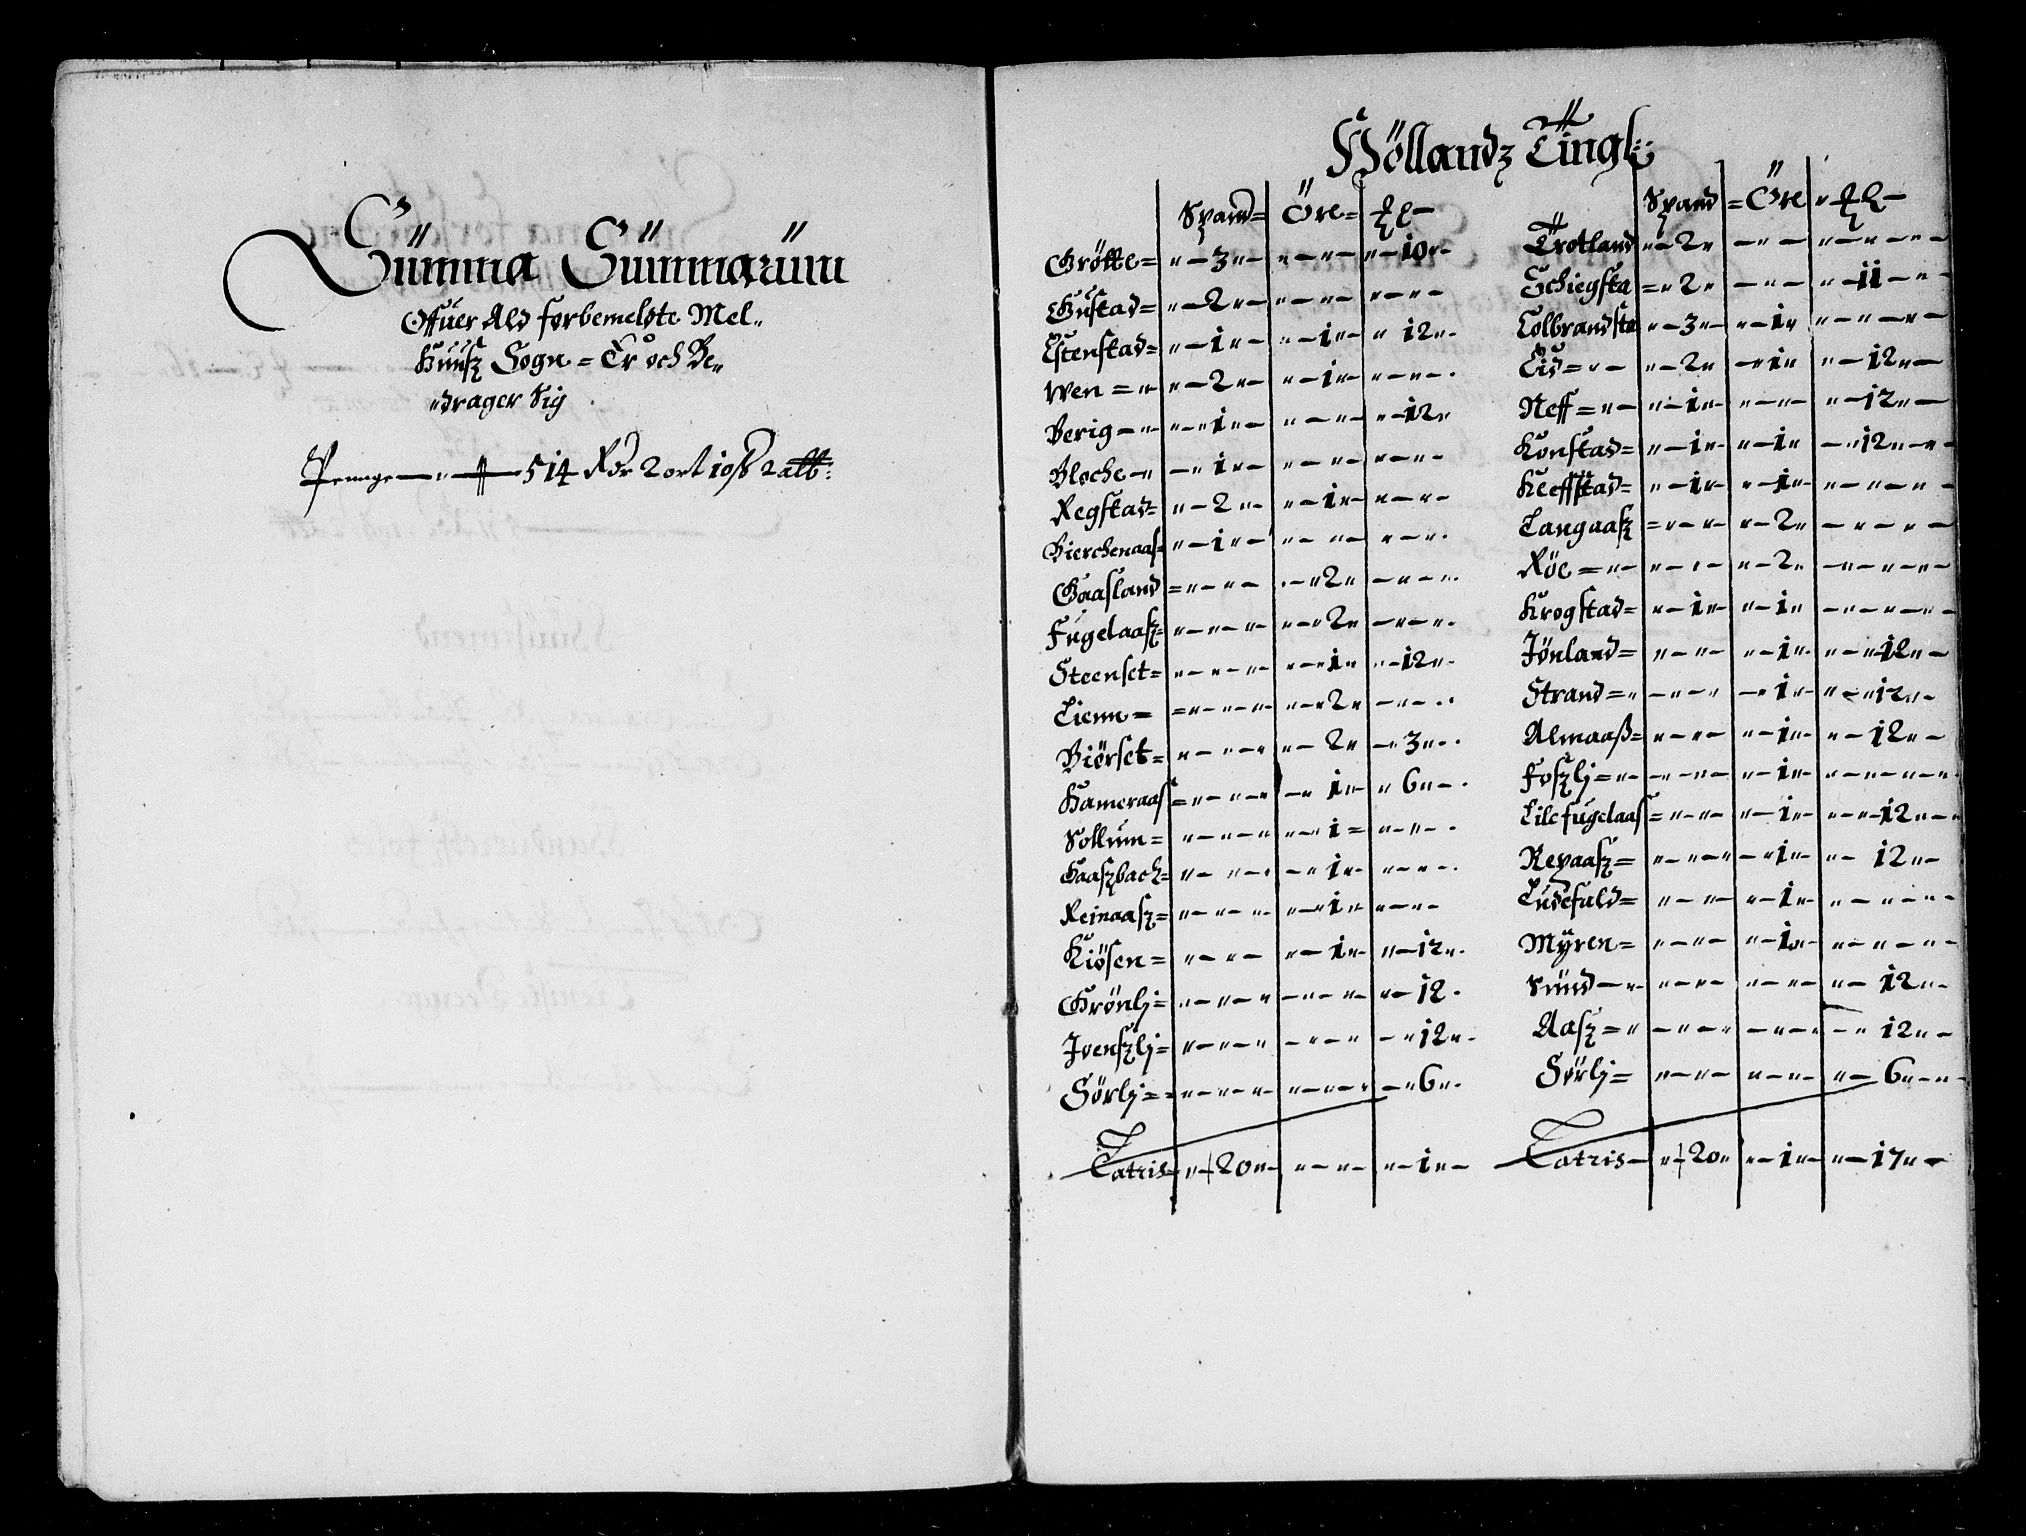 Summa Summarum
Offuer Ald forbemeldte Mel„
Huusz Sogn = Er och Be„
„drager Sig
Penge — „ — 514 Rdr 2 ort 10 ß 2 alb:
Höllandz Tingl:
Spand= Öre=
Grötte= 3 10
Gustad= 2
Estenstad= 1 1 12
Wen = 2 1
Berig 1 12
Bloche 1
Regstad= 2 1
Bierchenaas 1
Gaasland 2
Fugelaasz= 2
Steenset= 1 12
Lienn= 2
Biörset= 2 3
Hameraas 1 6
Sollum= 1
Gaaszbach= 1
Reinaasz= 1
Kiösen= 1 12
Grönlj= 12
Ivenszlj= 12
Sörlj= 6
Latris 20 1
Spand = Öre
Trotland 2
Schiegsta 2 11
Colbrandsta 3 1
Eid= 2 1 12
Neff= 1 12
Konstad= 1 1 12
Kleffstad= 1 1
Langaasz 2
Röe = 2
Krogstad= 1 1
Jönland= 1 12
Strand= 1 12
Almaaß= 1 12
Foszlj= 1
Lilefugelaas 1 12
Repaasz= 1 12
Ludefald= 1
Myren= 1
Sund 12
Aasz= 12
Sörlj= 6
Latris 20 1 17